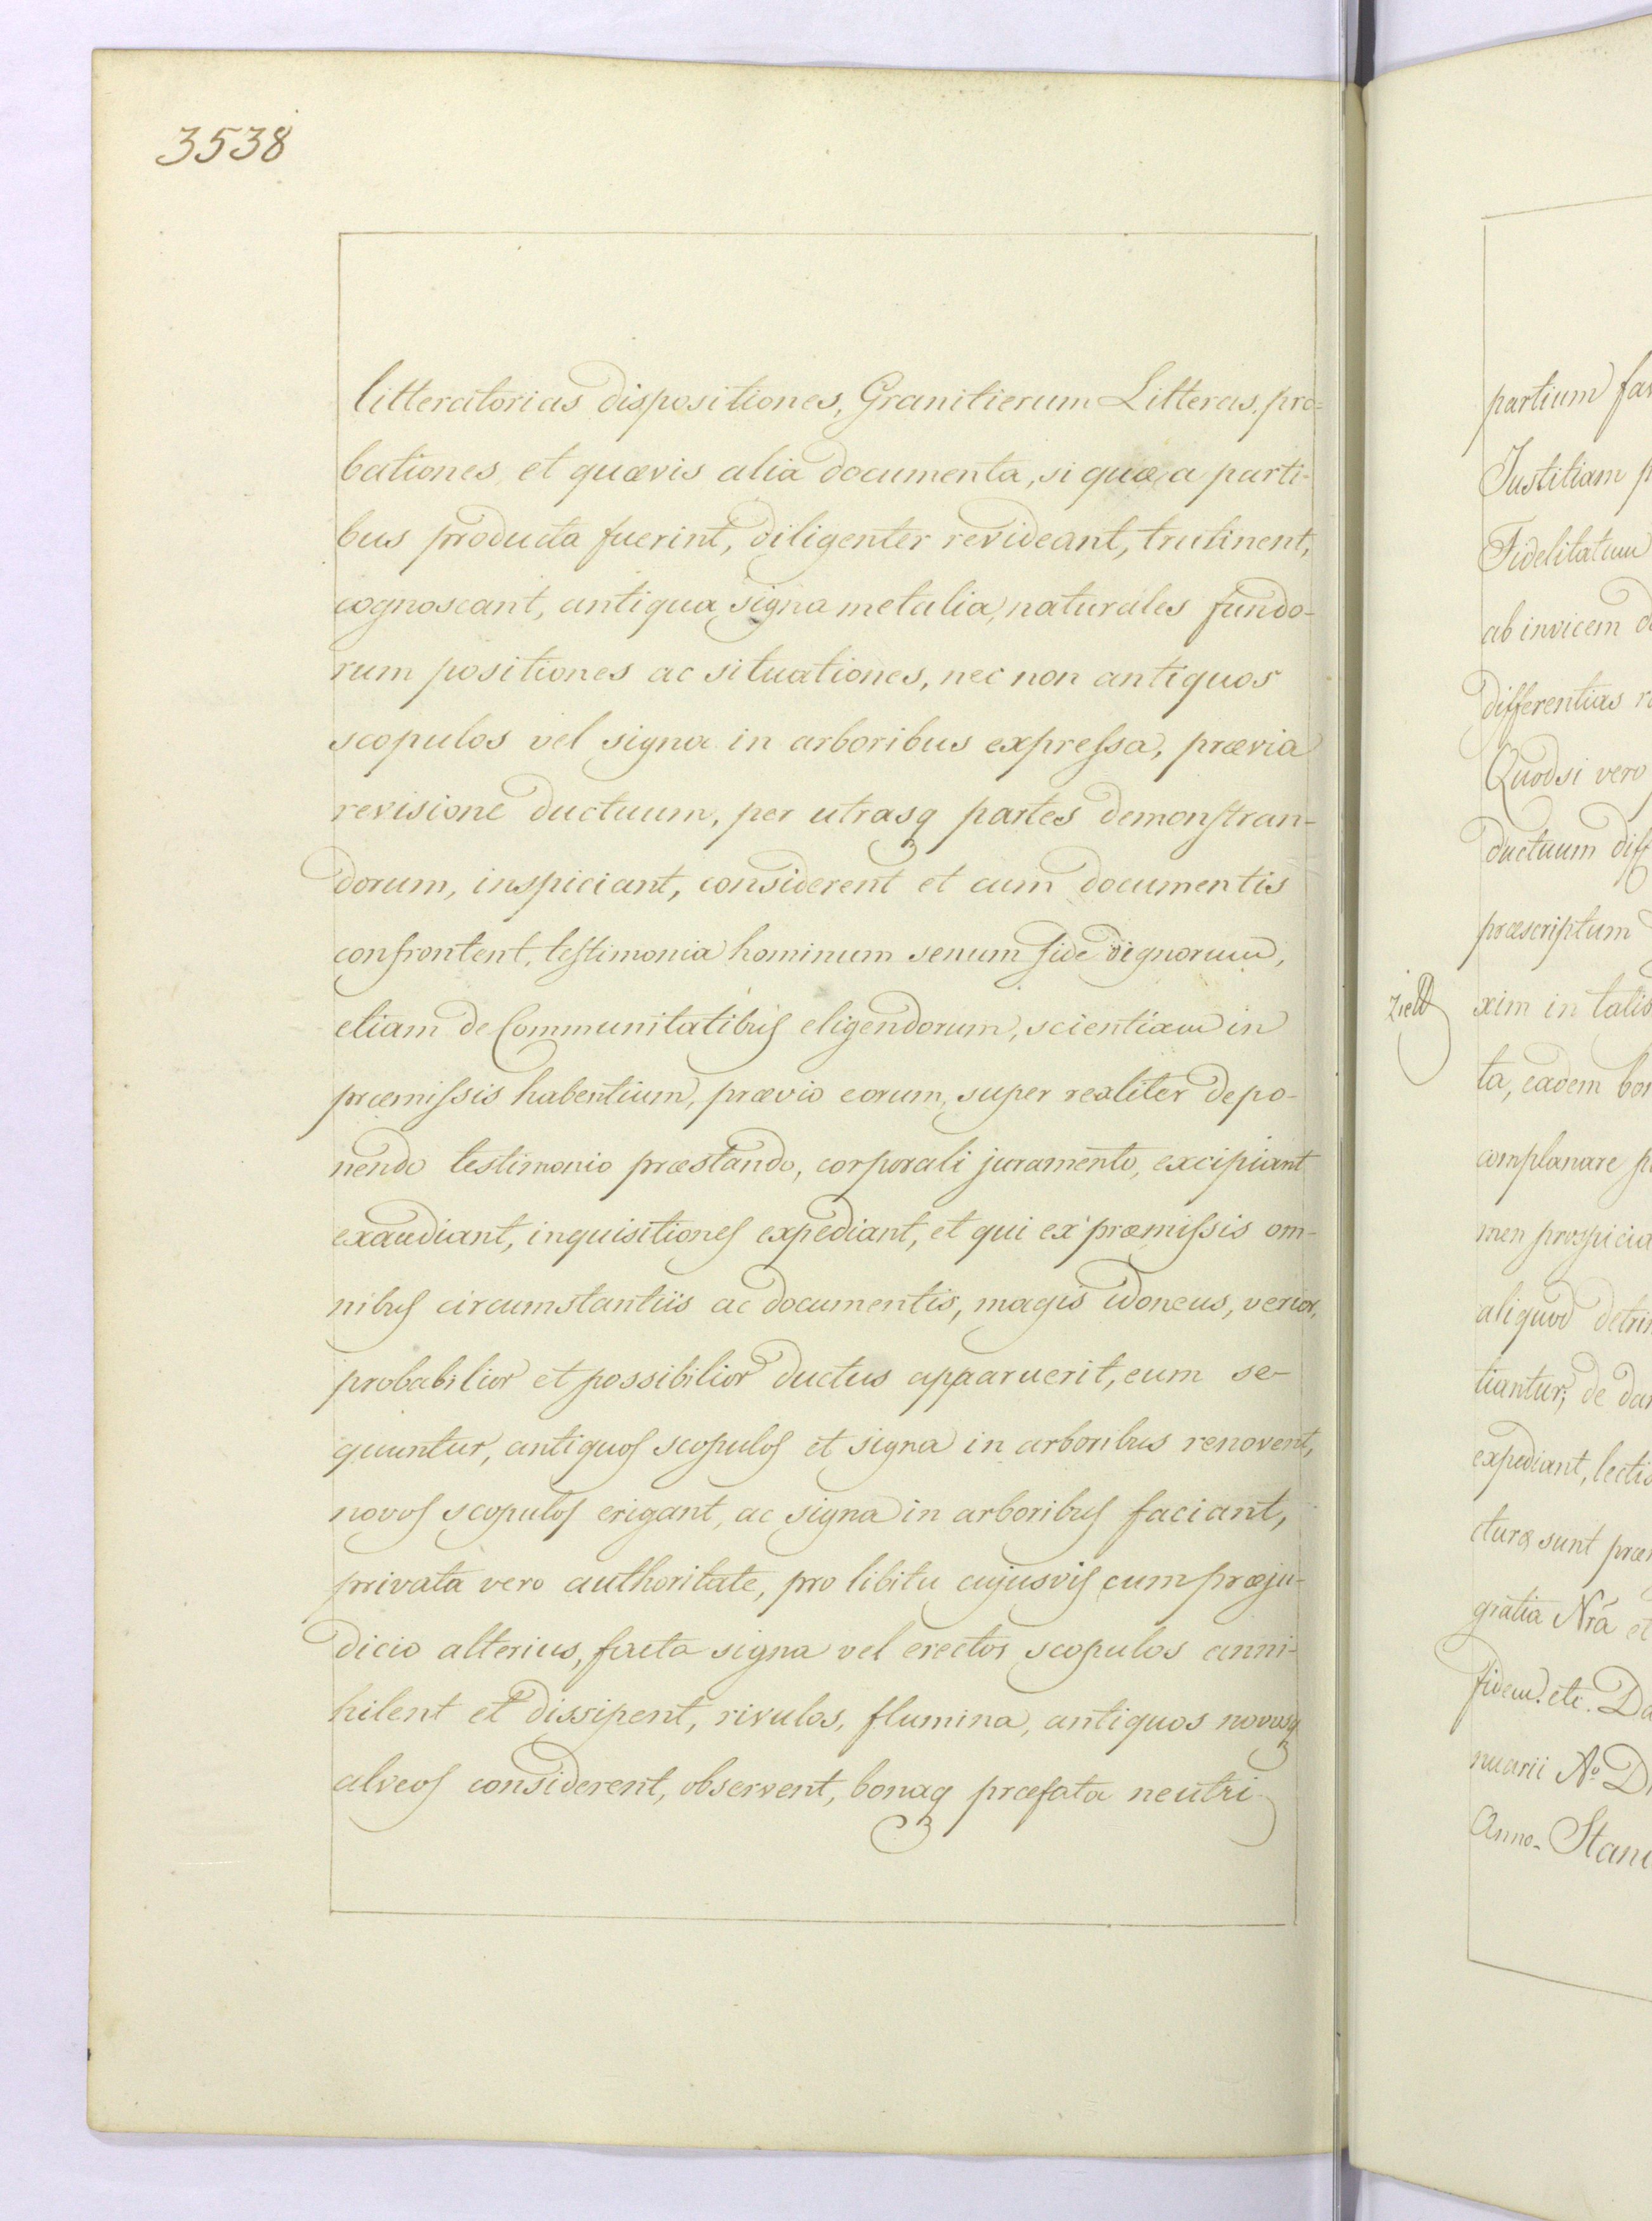 3538
litteratorias dispositiones, Granitierum Litteras, pro=
bationes et quævis alia documenta, si quæ a parti-
bus producta fuerint, diligenter revideant, trutinent,
cognoscant, antiqua signa metalia, naturales fundo-
rum positiones ac situationes, nec non antiquos
scopulos vel signa in arboribus expreſsa, prævia
revisione ductuum, per utrasq partes demonſtran-
dorum, inspiciant, considerent et cum documentis
confrontent, teſtimonia hominum senum fide dignorum,
etiam de Communitatibuſ eligendorum, scientiam in
præmiſsis habentium, prævio eorum, super realiter depo-
nendo testimonio præstando, corporali juramento, excipiant
exaudiant, inquisitioneſ expediant, et qui ex præmiſsis om-
nibuſ circumstantiis ac documentis, magis idoneus, verior,
probabilior et possibilior ductus apparuerit, eum se-
quuntur, antiquoſ scopuloſ et signa in arboribus renovent,
novoſ scopuloſ erigant, ac signa in arboribuſ faciant,
privata vero authoritate, pro libitu cujusviſ cum præju-
dicio alterius, facta signa vel erectos scopulos anni-
hilent et dissipent, rivulos, flumina, antiquos novosq
alveoſ considerent, observent, bonaq præfata neutri
partium
Justitiam
Fidelitatum
ab invicem
differentias
Quodsi vero
ductuum
præscriptum
xim in talis
ta, eadem
complanare
men
aliquod
tiantur; de
expediant,
cturæ sunt
gratia Nrã et
fidem etc.
nuarii Aº
Anno